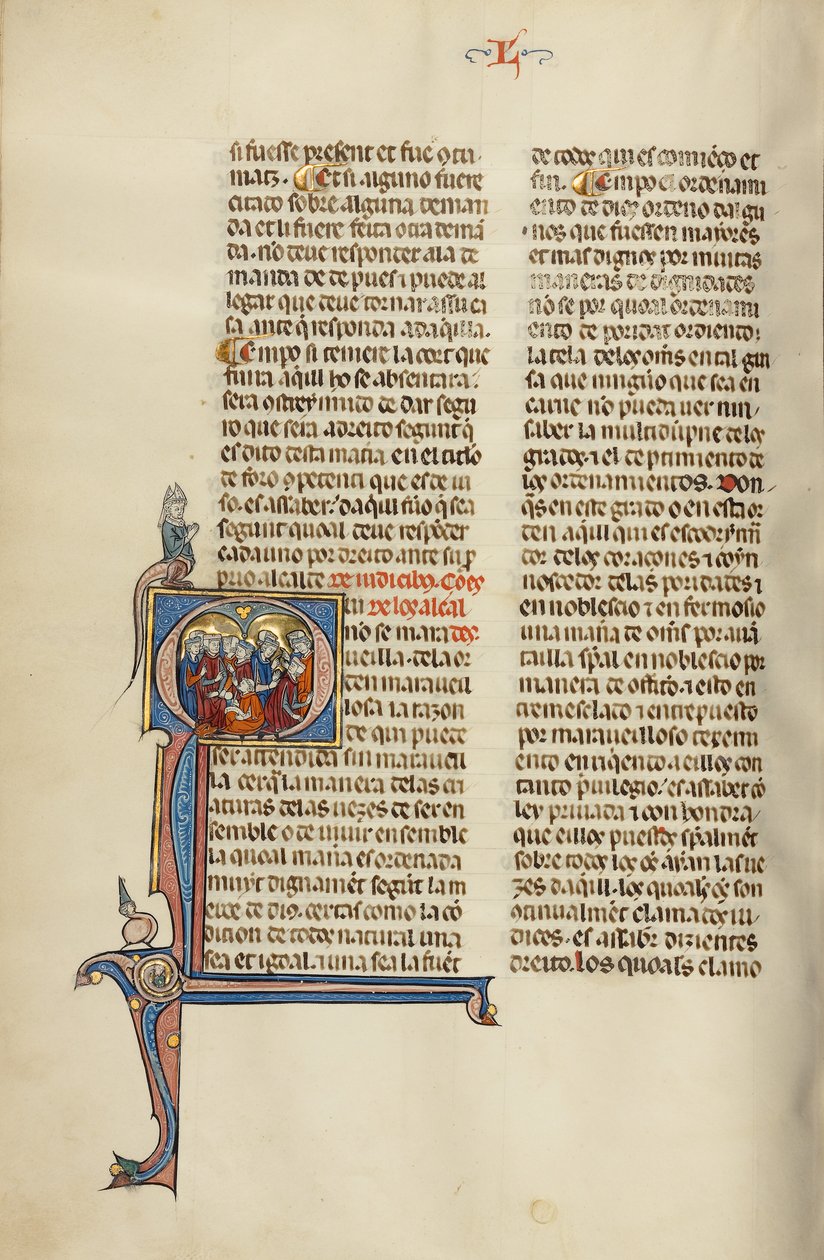 L
si fuesse present et fue ꝯtu
maz. Et si alguno fuere
citado sobre alguna deman
da et li fuere feita otra demā
da. nō deue responder a la de
manda de depues ⁊ puede al
legar que deue tornar assu ca
sa ante q̄ responda ad aq̄lla.
Empo si temiere la cort que
aq̄ill ho se absentara
sera ꝯstreynnido de dar segu
ro que sera a dreito segunt q̄
es dito desta maīa en el titlo
de foro ꝯpetenti que es de iu
so. es assaber. daq̄ill fūo q̄ sea
segunt quoal deue respōder
cada uno por dreito ante su p̄
prio alcalde De iudicibꝫ. Co es
De los alcal
nō se mara des.
ueilla. de la or
den maraueil
losa la razon
de qui puede
ser attendida sin marauei
lla cerq̄ la manera de las cri
aturas de las uezes de ser en
semble o de uiuir ensemble
la quoal maīa es ordenada
muyt dignamēt segūt la m
erce de dīꝯ. certas como la cō
dicion de todos natural una
sea et igoal ⁊ una sea la fuēt
de todos qui es comiēço et
fin. Empo el ordenami
ento de dios ordeno dalgu
nos que fuessen mayores
et mas dignos por muitas
maneras de dignidades
nō se por quoal ordenami
ento de poridat ordiendo
la tela de los om̄s en tal gui
sa que ningūo que sea en
carne nō pueda uer nin
saber la multidūpne de los
grados. ⁊ el deptimiento de
los ordenamientos. Don
q̄s en este grado o en esta or
den aquill qui es escodrynn̄
dor de los coraçones ⁊ coyn
noscedor de las poridades ⁊
ennoblescio ⁊ enfermosio
una maīa de om̄s por auā
tailla sp̄al ennoblescio por
manera de officio. ⁊ esto en
tremesclado ⁊ entrepuesto
por marauelloso texemi
ento enriq̄ento a eillos con
tanto p̄uilegio. es assaber cō
ley priuada ⁊ con hondra
que eillos puestos sp̄almēt
sobre todos los q̄ aȳan las ue
zes daq̄ill. los quoales son
ꝯtinualmēt clamados iu
dices. es assabr dizientes
dreito. los quoals clamo